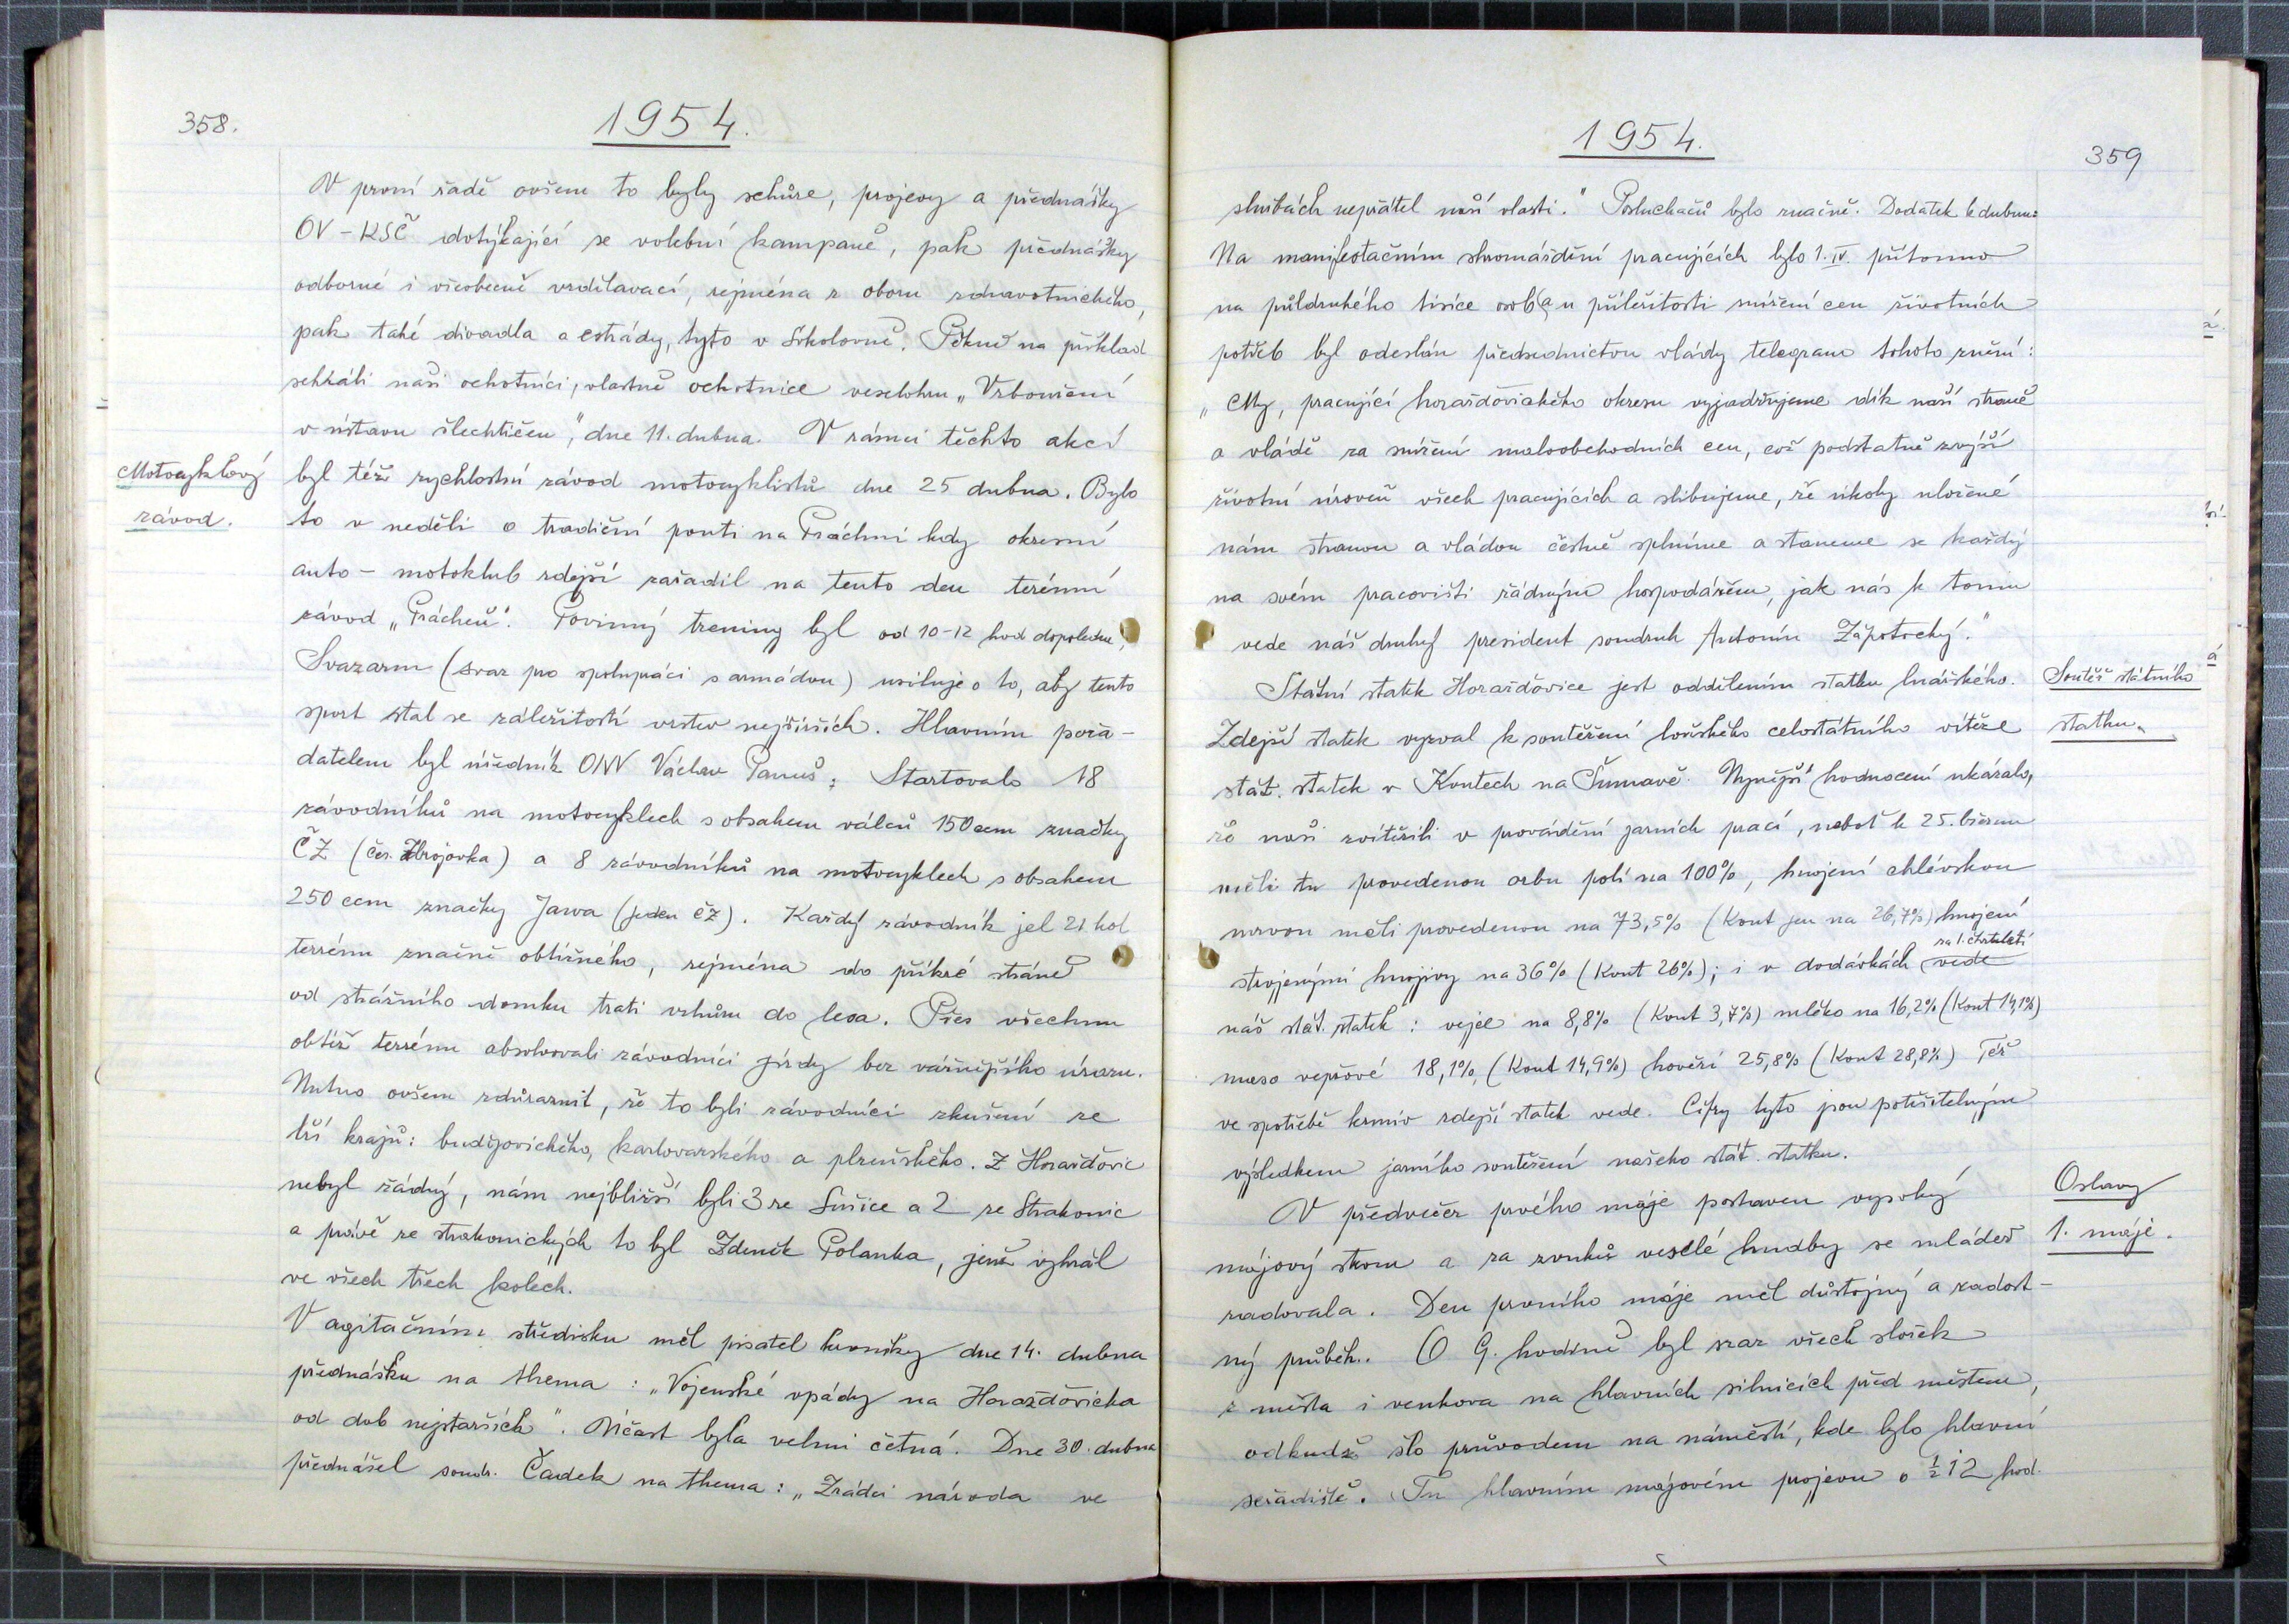 358.
1954.
V první řadě ovšem to byly schůze, projevy a přednášky
OV-KSČ dotýkající se volební kampaně, pak přednášky
odborné i všeobecně vzdělavací, zejména z oboru zdravotnického,
pak také divadla a estrády, tyto v Sokolovně. Pěkně na příklad
sehráli naši ochotníci, vlastně ochotnice veselohru „Vzbouření
v ústavu šlechtičen“, dne 11. dubna. V rámci těchto akcí
Motocyklový
závod.
byl též rychlostní závod motocyklistů dne 25 dubna. Bylo
to v neděli o tradiční pouti na Práchni kdy okresní
auto-motoklub zdejší zařadil na tento den terénní
závod „Prácheň“. Povinný trening byl od 10-12 hod dopoledne,
Svazarm (svaz pro spolupráci s armádou) usiluje o to, aby tento
sport stal se záležitostí vrstev nejširších. Hlavním pořa-
datelem byl úředník ONV Václav Panuš; Startovalo 18
závodníků na motocyklech s obsahem válců 150 ccm značky
ČZ (čes. Zbrojovka) a 8 závodníků na motocyklech s obsahem
250 ccm značky Jawa (jeden ČZ). Každý závodník jel 21 kol
terrénu značně obtížného, zejména do příkré stráně
od strážního domku trati vzhůru do lesa. Přes všechnu
obtíž terrénu absolvovali závodníci jízdy bez vážnějšího úrazu.
Nutno ovšem zdůraznit, že to byli závodníci zkušení ze
tří krajů: budějovického, karlovarského a plzeňského. Z Horažďovic
nebyl žádný, nám nejbližší byli 3 ze Sušice a 2 ze Strakonic
a právě ze strakonických to byl Zdeněk Polanka, jenž vyhrál
ve všech třech kolech.
V agitačním středisku měl pisatel kroniky dne 14. dubna
přednášku na thema: „Vojenské vpády na Horažďovicka
od dob nejstarších“. Účast byla velmi četná. Dne 30. dubna
přednášel soudr. Čadek na thema: „Zrádci národa ve
1954.
359
službách nepřátel naší vlasti.“ Posluchačů bylo značně. Dodatek k dubnu:
Na manifestačním shromáždění pracujících bylo 1. IV. přítomno
na půldruhého tisíce osob a u příležitosti snížení cen životních
potřeb byl odeslán předsednictvu vlády telegram tohoto znění:
„My, pracující horažďovického okresu vyjadřujeme dík naší straně
a vládě za snížení maloobchodních cen, což podstatně zvýší
životní úroveň všech pracujících a slibujeme, že úkoly uložené
nám stranou a vládou čestně splníme a staneme se každý
na svém pracovišti řádným hospodářem, jak nás k tomu
vede náš druhý president soudruh Antonín Zápotocký.“
Soutěž státního
statku.
Státní statek Horažďovice jest oddělením statku lnářského.
Zdejší statek vyzval k soutěžení loňského celostátního vítěze
stát. statek v Koutech na Šumavě. Nynější hodnocení ukázalo,
že naši zvítězili v provádění jarních prací, neboť k 25. březnu
měli tu provedenou orbu polí na 100%, hnojení chlévskou
mrvou měli provedenou na 73,5% (Kout jen na 26,7%) hnojení
strojenými hnojivy na 36% (Kout 26%); i v dodávkách za 1. čtvrtletí vede
náš stát. statek: vejce na 8,8% (Kout 3,7%) mléko na 16,2% (Kout 14,1%)
maso vepřové 18,1% (Kout 14,9%) hovězí 25,8% (Kout 28,8%) Též
ve spotřebě krmiv zdejší statek vede. Cifry tyto jsou potěšitelným
výsledkem jarního soutěžení našeho stát. statku.
Oslavy
1. máje.
V předvečer prvého máje postaven vysoký
májový strom a za zvuků veselé hudby se mládež
radovala. Den prvního máje měl důstojný a radost-
ný průběh. O 9. hodině byl sraz všech složek
z města i venkova na hlavních silnicích před městem,
odkudž šlo průvodem na náměstí, kde bylo hlavní
seřadiště. Tu hlavním májovém projevu o ½ 12 hod.